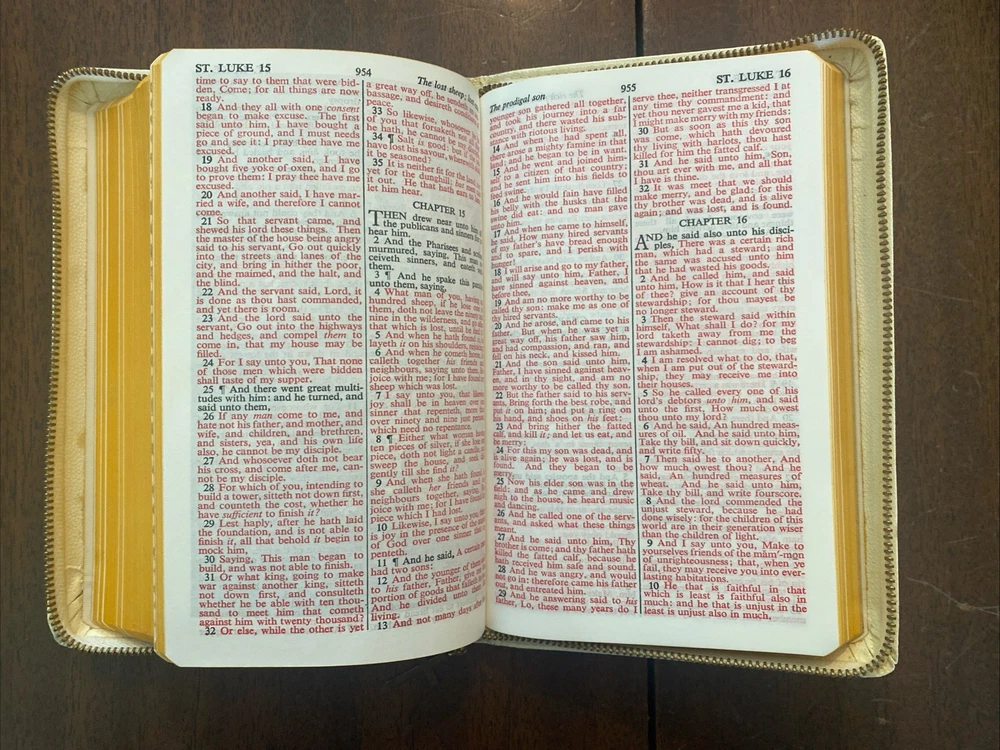 ST. LUKE 15
954
The lost sheep;
time to say to them that were bid-
den, Come; for all things are now
ready.
18 And they all with one consent
began to make excuse. The first
said unto him, I have bought a
piece of ground, and I must needs
go and see it: I pray thee have me
excused.
19 And another said, I have
bought five yoke of oxen, and I go
to prove them: I pray thee have me
excused.
20 And another said, I have mar-
ried a wife, and therefore I cannot
come.
21 So that servant came, and
shewed his lord these things. Then
the master of the house being angry
said to his servant, Go out quickly
into the streets and lanes of the
city, and bring in hither the poor,
and the maimed, and the halt, and
the blind.
22 And the servant said, Lord, it
is done as thou hast commanded,
and yet there is room.
23 And the lord said unto the
servant, Go out into the highways
and hedges, and compel them to
come in, that my house may be
filled.
24 For I say unto you, That none
of those men which were bidden
shall taste of my supper.
25 ¶ And there went great multi-
tudes with him: and he turned, and
said unto them,
26 If any man come to me, and
hate not his father, and mother, and
wife, and children, and brethren,
and sisters, yea, and his own life
also, he cannot be my disciple.
27 And whosoever doth not bear
his cross, and come after me, can-
not be my disciple.
28 For which of you, intending to
build a tower, sitteth not down first,
and counteth the cost, whether he
have sufficient to finish it?
29 Lest haply, after he hath laid
the foundation, and is not able to
finish it, all that behold it begin to
mock him,
30 Saying, This man began to
build, and was not able to finish.
31 Or what king, going to make
war against another king, sitteth
not down first, and consulteth
whether he be able with ten thou-
sand to meet him that cometh
against him with twenty thousand?
32 Or else, while the other is yet
a great way off, he sendeth
bassage, and desireth conditions
peace.
33 So likewise, whosoever
of you that forsaketh not
he hath, he cannot be my dis
34 ¶ Salt is good: but if
have lost his savour, wherewith
it be seasoned?
35 It is neither fit for the land,
yet for the dunghill; but men
it out. He that hath ears to
let him hear.
CHAPTER 15
THEN drew near unto him
the publicans and sinners for
hear him.
2 And the Pharisees and
murmured, saying, This man
ceiveth sinners, and eateth
them.
3 ¶ And he spake this
unto them, saying,
4 What man of you, having
hundred sheep, if he lose one
them, doth not leave the ninety
nine in the wilderness, and go
that which is lost, until he
5 And when he hath found
layeth it on his shoulders,
6 And when he cometh home,
calleth together his friends
neighbours, saying unto them,
joice with me; for I have found
sheep which was lost.
7 I say unto you, that likewise
joy shall be in heaven over
sinner that repenteth, more
over ninety and nine just
which need no repentance.
8 ¶ Either what woman having
ten pieces of silver, if she lose
piece, doth not light a candle,
sweep the house, and seek
gently till she find it?
9 And when she hath found
she calleth her friends and
neighbours together, saying,
joice with me; for I have found
piece which I had lost.
10 Likewise, I say unto you,
is joy in the presence of the
of God over one sinner that
penteth.
11 ¶ And he said, A certain
had two sons:
12 And the younger of them
to his father, Father, give me
portion of goods that falleth
And he divided unto them
living.
13 And not many days after
The prodigal son
955
ST. LUKE 16
younger son gathered all together,
and took his journey into a far
country, and there wasted his sub-
stance with riotous living.
14 And when he had spent all,
there arose a mighty famine in that
land; and he began to be in want.
15 And he went and joined him-
self to a citizen of that country;
and he sent him into his fields to
feed swine.
16 And he would fain have filled
his belly with the husks that the
swine did eat: and no man gave
unto him.
17 And when he came to himself,
he said, How many hired servants
of my father's have bread enough
and to spare, and I perish with
hunger!
18 I will arise and go to my father,
and will say unto him, Father, I
have sinned against heaven, and
before thee,
19 And am no more worthy to be
called thy son: make me as one of
thy hired servants.
20 And he arose, and came to his
father. But when he was yet a
great way off, his father saw him,
and had compassion, and ran, and
fell on his neck, and kissed him.
21 And the son said unto him,
Father, I have sinned against heav-
en, and in thy sight, and am no
more worthy to be called thy son.
22 But the father said to his serv-
ants, Bring forth the best robe, and
put it on him; and put a ring on
his hand, and shoes on his feet:
23 And bring hither the fatted
calf, and kill it; and let us eat, and
be merry:
24 For this my son was dead, and
is alive again; he was lost, and is
found. And they began to be
merry.
25 Now his elder son was in the
field: and as he came and drew
nigh to the house, he heard music
and dancing.
26 And he called one of the serv-
ants, and asked what these things
meant.
27 And he said unto him, Thy
brother is come; and thy father hath
killed the fatted calf, because he
hath received him safe and sound.
28 And he was angry, and would
not go in: therefore came his father
out, and entreated him.
29 And he answering said to his
father, Lo, these many years do I
serve thee, neither transgressed I at
any time thy commandment: and
yet thou never gavest me a kid, that
I might make merry with my friends:
30 But as soon as this thy son
was come, which hath devoured
thy living with harlots, thou hast
killed for him the fatted calf.
31 And he said unto him, Son,
thou art ever with me, and all that
I have is thine.
32 It was meet that we should
make merry, and be glad: for this
thy brother was dead, and is alive
again; and was lost, and is found.
CHAPTER 16
AND he said also unto his disci-
ples, There was a certain rich
man, which had a steward; and
the same was accused unto him
that he had wasted his goods.
2 And he called him, and said
unto him, How is it that I hear this
of thee? give an account of thy
stewardship; for thou mayest be
no longer steward.
3 Then the steward said within
himself, What shall I do? for my
lord taketh away from me the
stewardship: I cannot dig; to beg
I am ashamed.
4 I am resolved what to do, that,
when I am put out of the steward-
ship, they may receive me into
their houses.
5 So he called every one of his
lord's debtors unto him, and said
unto the first, How much owest
thou unto my lord?
6 And he said, An hundred meas-
ures of oil. And he said unto him,
Take thy bill, and sit down quickly,
and write fifty.
7 Then said he to another, And
how much owest thou? And he
said, An hundred measures of
wheat. And he said unto him,
Take thy bill, and write fourscore.
8 And the lord commended the
unjust steward, because he had
done wisely: for the children of this
world are in their generation wiser
than the children of light.
9 And I say unto you, Make to
yourselves friends of the mămˊ-mon
of unrighteousness; that, when ye
fail, they may receive you into ever-
lasting habitations.
10 He that is faithful in that
which is least is faithful also in
much: and he that is unjust in the
least is unjust also in much.